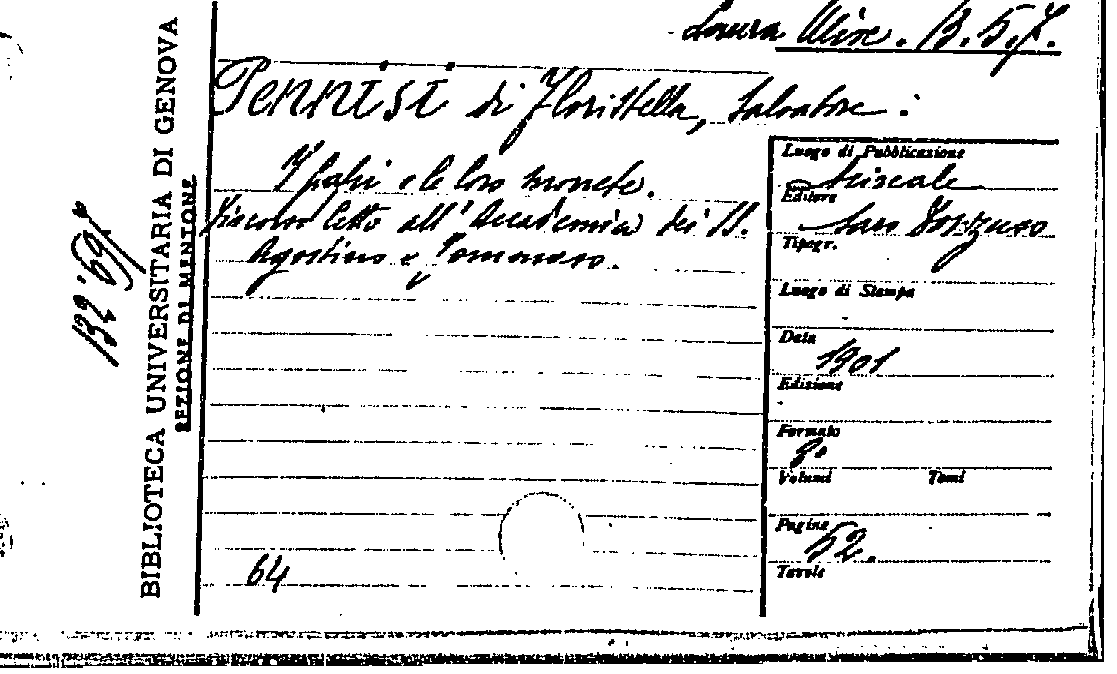 Laura Misc. B. 5. 7.
Pennisi di Floristella, Salvatore:
I papi e le loro monete.
Discorso letto all'Accademia dei SS.
Agostino e Tommaso.
64
BIBLIOTECA UNIVERSITARIA DI GENOVA
SEZIONE DI MENTONE
Luogo di Pubblicazione
Acireale
Editore
Saro
Tipogr.
Luogo di Stampa
Data
1901
Edizione
Formato
8°
Volumi Tomi
Pagine
52.
Tavole